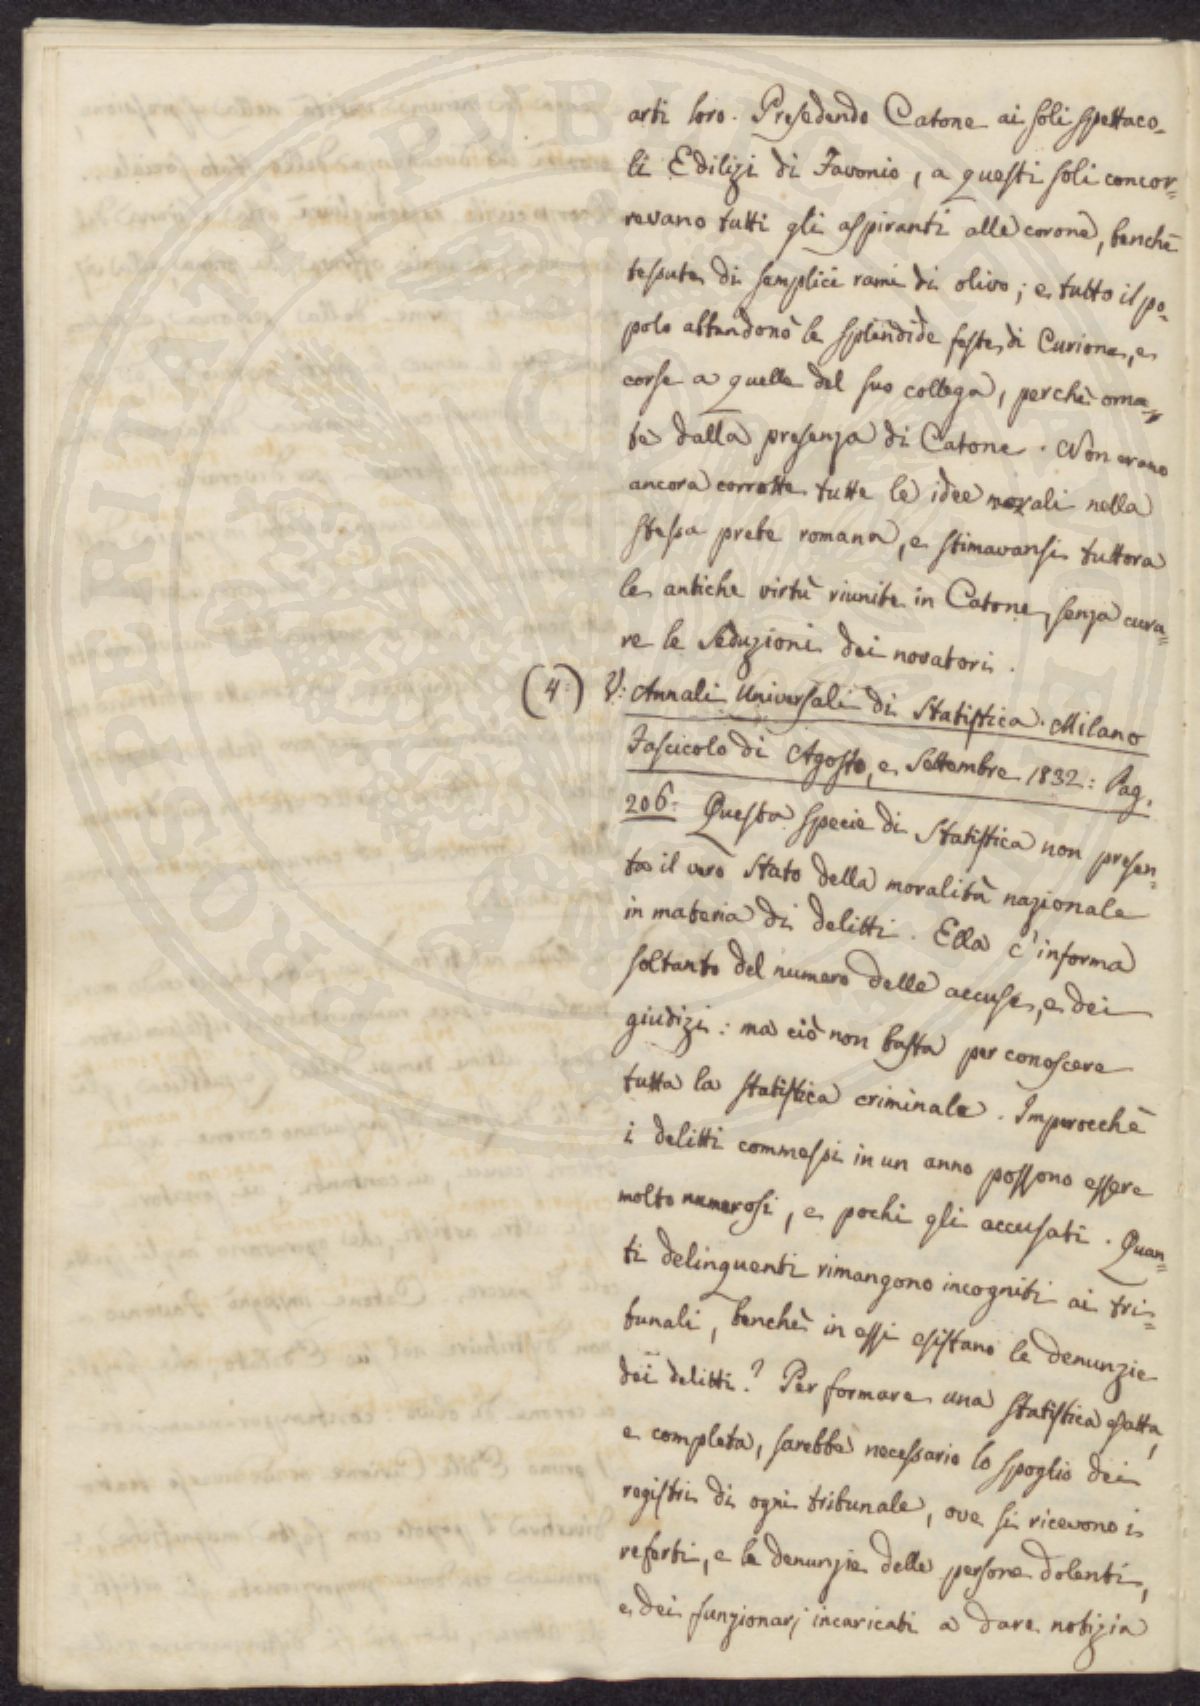 arti loro. Presedendo Catone ai soli spettaco-
li Edilizi di Favonio, a questi soli concor-
revano tutti gli aspiranti alle corone, benchè
tessute di semplici rami di olivo; e tutto il po-
polo abbandonò le splendide feste di Curione, e
corse a quelle del suo collega, perchè orna-
te dalla presenza di Catone. Non erano
ancora corrotte tutte le idee morali nella
stessa prete romana, e stimavansi tuttora
le antiche virtù riunite in Catone, senza cura-
re le seduzioni dei novatori.
(4:) V: Annali Universali di Statistica. Milano
Fascicolo di Agosto, e Settembre 1832: Pag.
206: Questa specie di Statistica non presen-
ta il vero Stato della moralità nazionale
in materia di delitti. Ella c'informa
soltanto del numero delle accuse, e dei
giudizi: ma ciò non basta per conoscere
tutta la statistica criminale. Imperocchè
i delitti commessi in un anno possono essere
molto numerosi, e pochi gli accusati. Quan-
ti delinquenti rimangono incogniti ai tri-
bunali, benchè in essi esistano le denunzie
dei delitti? Per formare una statistica esatta,
e completa, sarebbe necessario lo spoglio dei
registri di ogni tribunale, ove si ricevono i
referti, e le denunzie delle persone dolenti,
e dei funzionarj incaricati a dare notizia